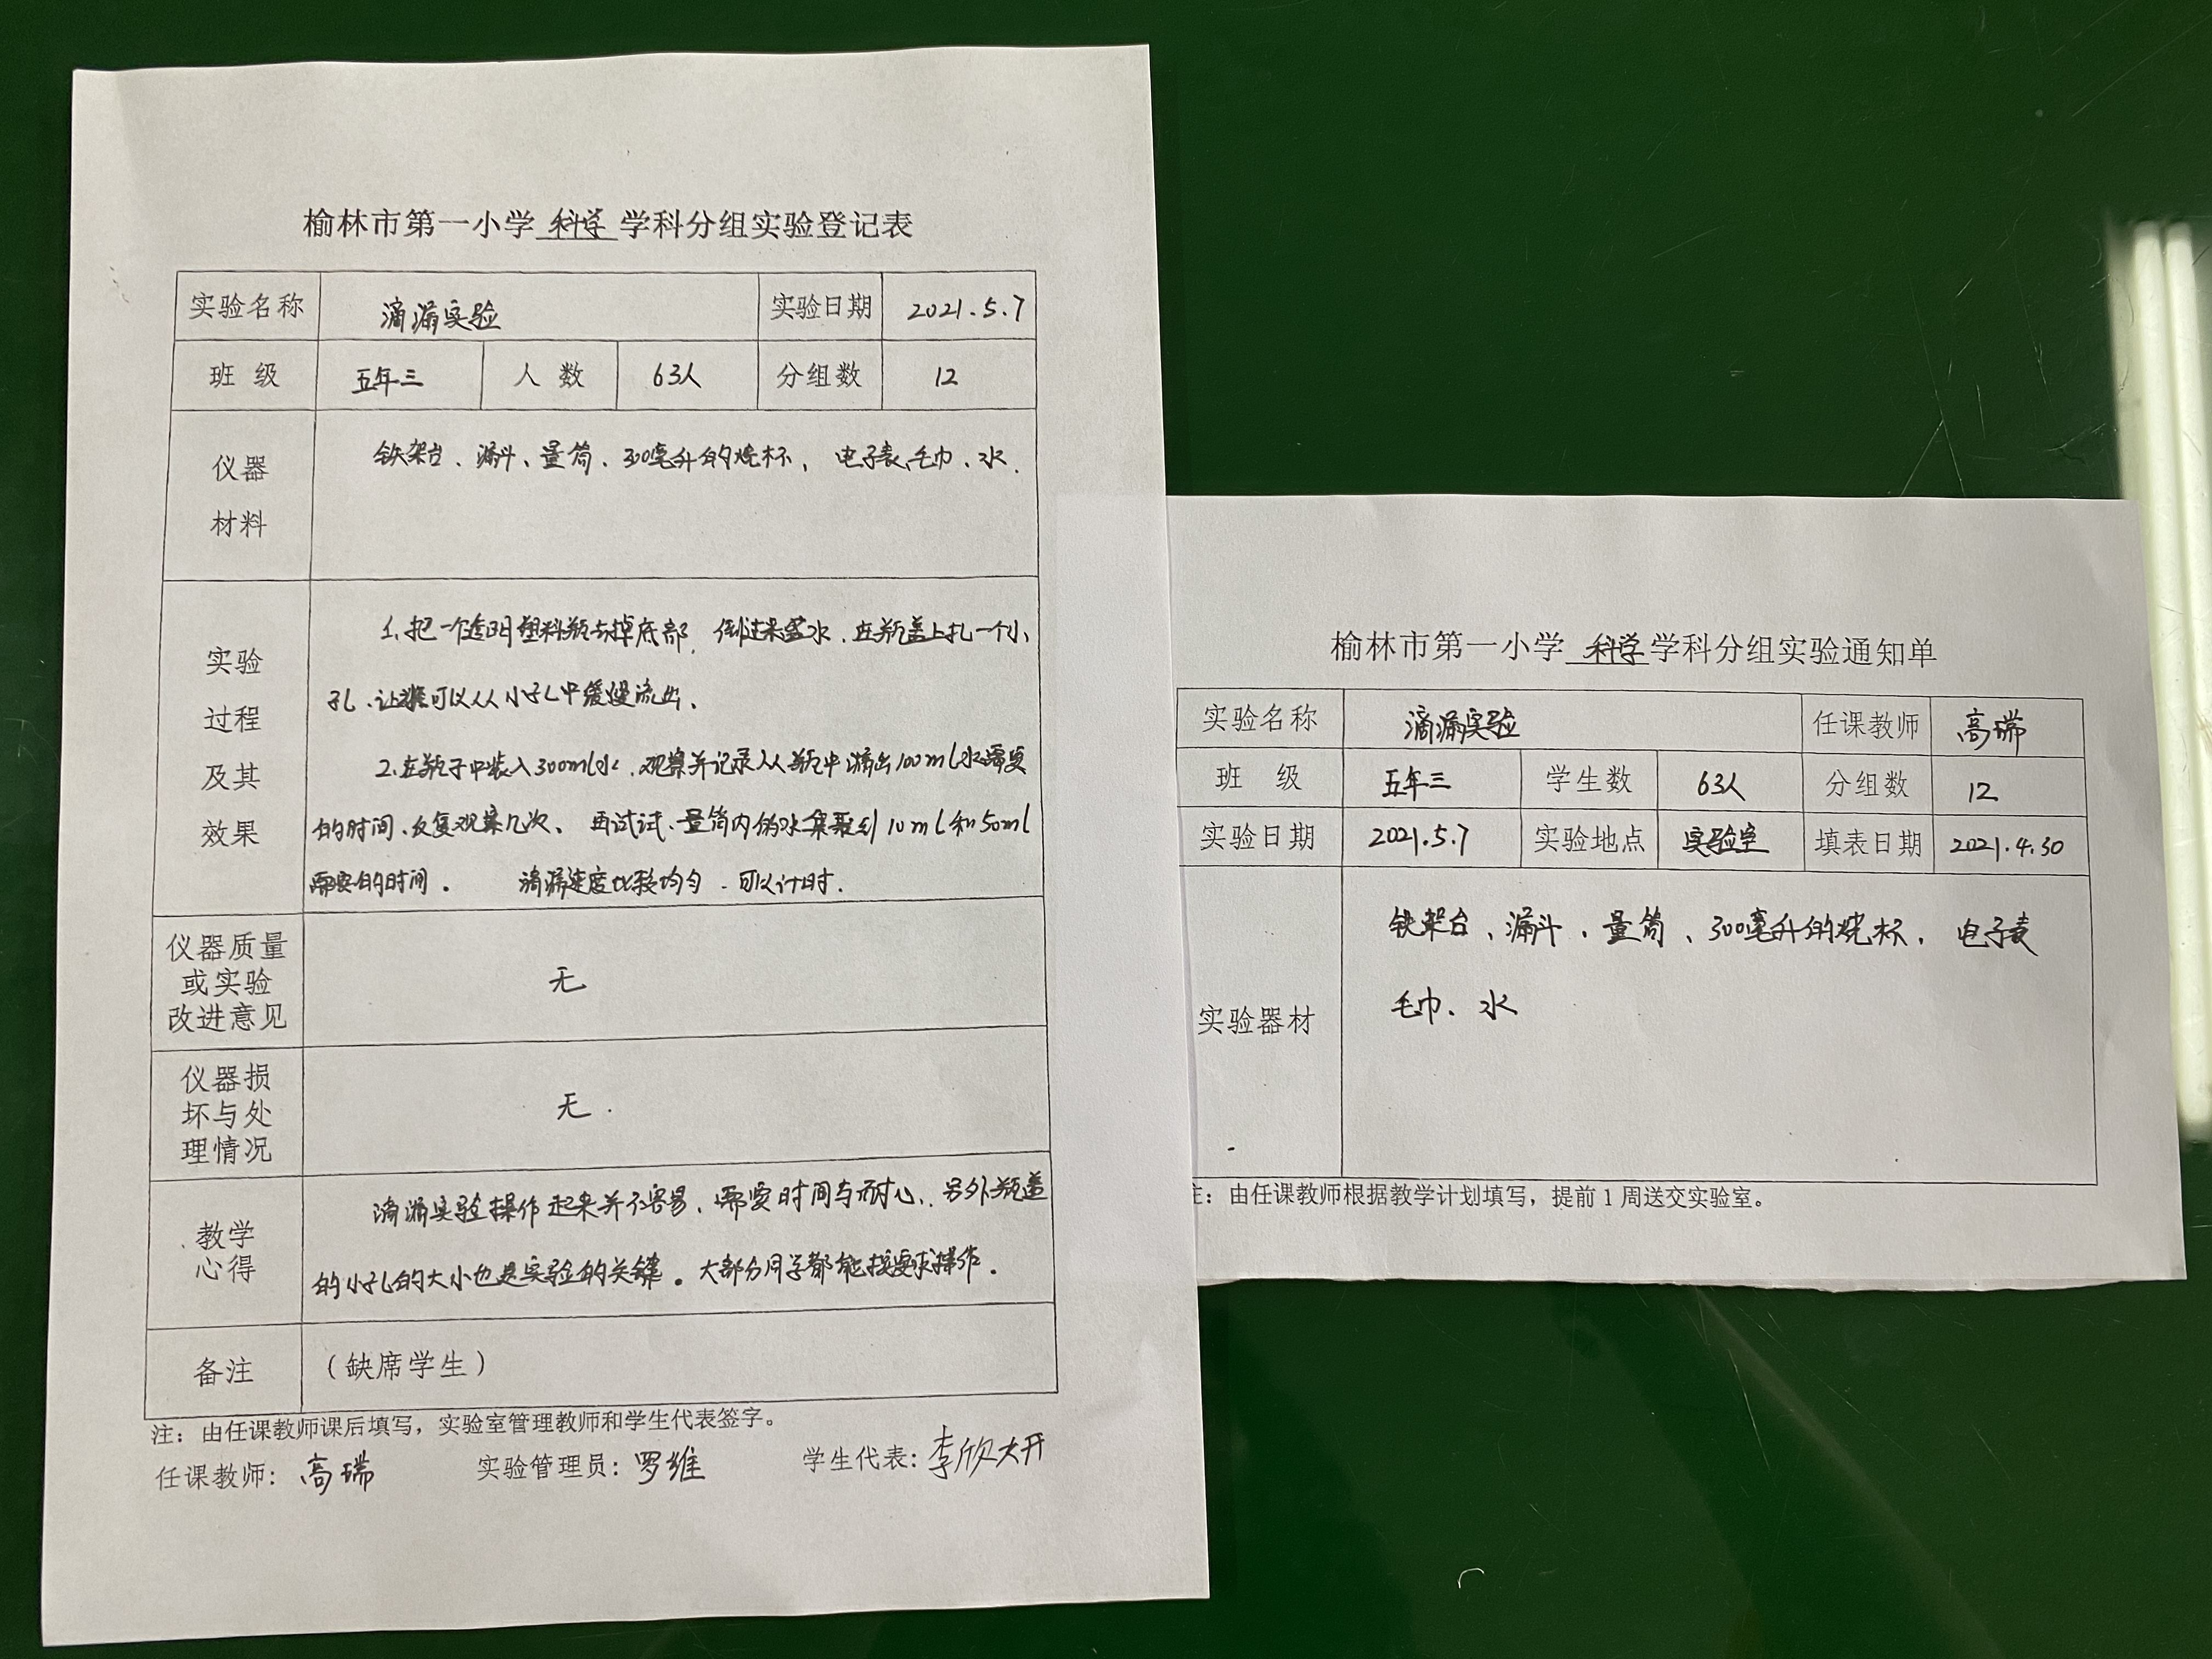 榆林市第一小学 科学 学科分组实验登记表
实验名称 滴漏实验 实验日期 2021.5.7
班 级 五年三 人 数 63人 分组数 12
仪器
材料
铁架台、漏斗、量筒、300毫升的烧杯, 电子表、毛巾、水.
实验
过程
及其
效果
1、把一个透明塑料瓶去掉底部, 倒过来盛水、在瓶盖上扎一个小
孔、让水可以从小孔中缓慢流出、
2、在瓶子中装入300ml水、观察并记录从瓶中滴出100ml水需要
的时间、反复观察几次、 再试试、量筒内的水集聚到10ml和50ml
需要的时间。 滴漏速度比较均匀、可以计时.
仪器质量
或实验
改进意见
无
仪器损
坏与处
理情况
无.
教学
心得
滴漏实验操作起来并不容易、需要时间与耐心、另外瓶盖
的小孔的大小也是实验的关键。大部分同学都能按要求操作。
备注
(缺席学生)
注: 由任课教师课后填写, 实验室管理教师和学生代表签字。
任课教师: 高瑞 实验管理员: 罗维 学生代表: 李欣
榆林市第一小学 科学 学科分组实验通知单
实验名称 滴漏实验 任课教师 高瑞
班 级 五年三 学生数 63人 分组数 12
实验日期 2021.5.7 实验地点 实验室 填表日期 2021.4.30
实验器材
铁架台、漏斗、量筒、300毫升的烧杯, 电子表
毛巾、水
注: 由任课教师根据教学计划填写, 提前1周送交实验室。